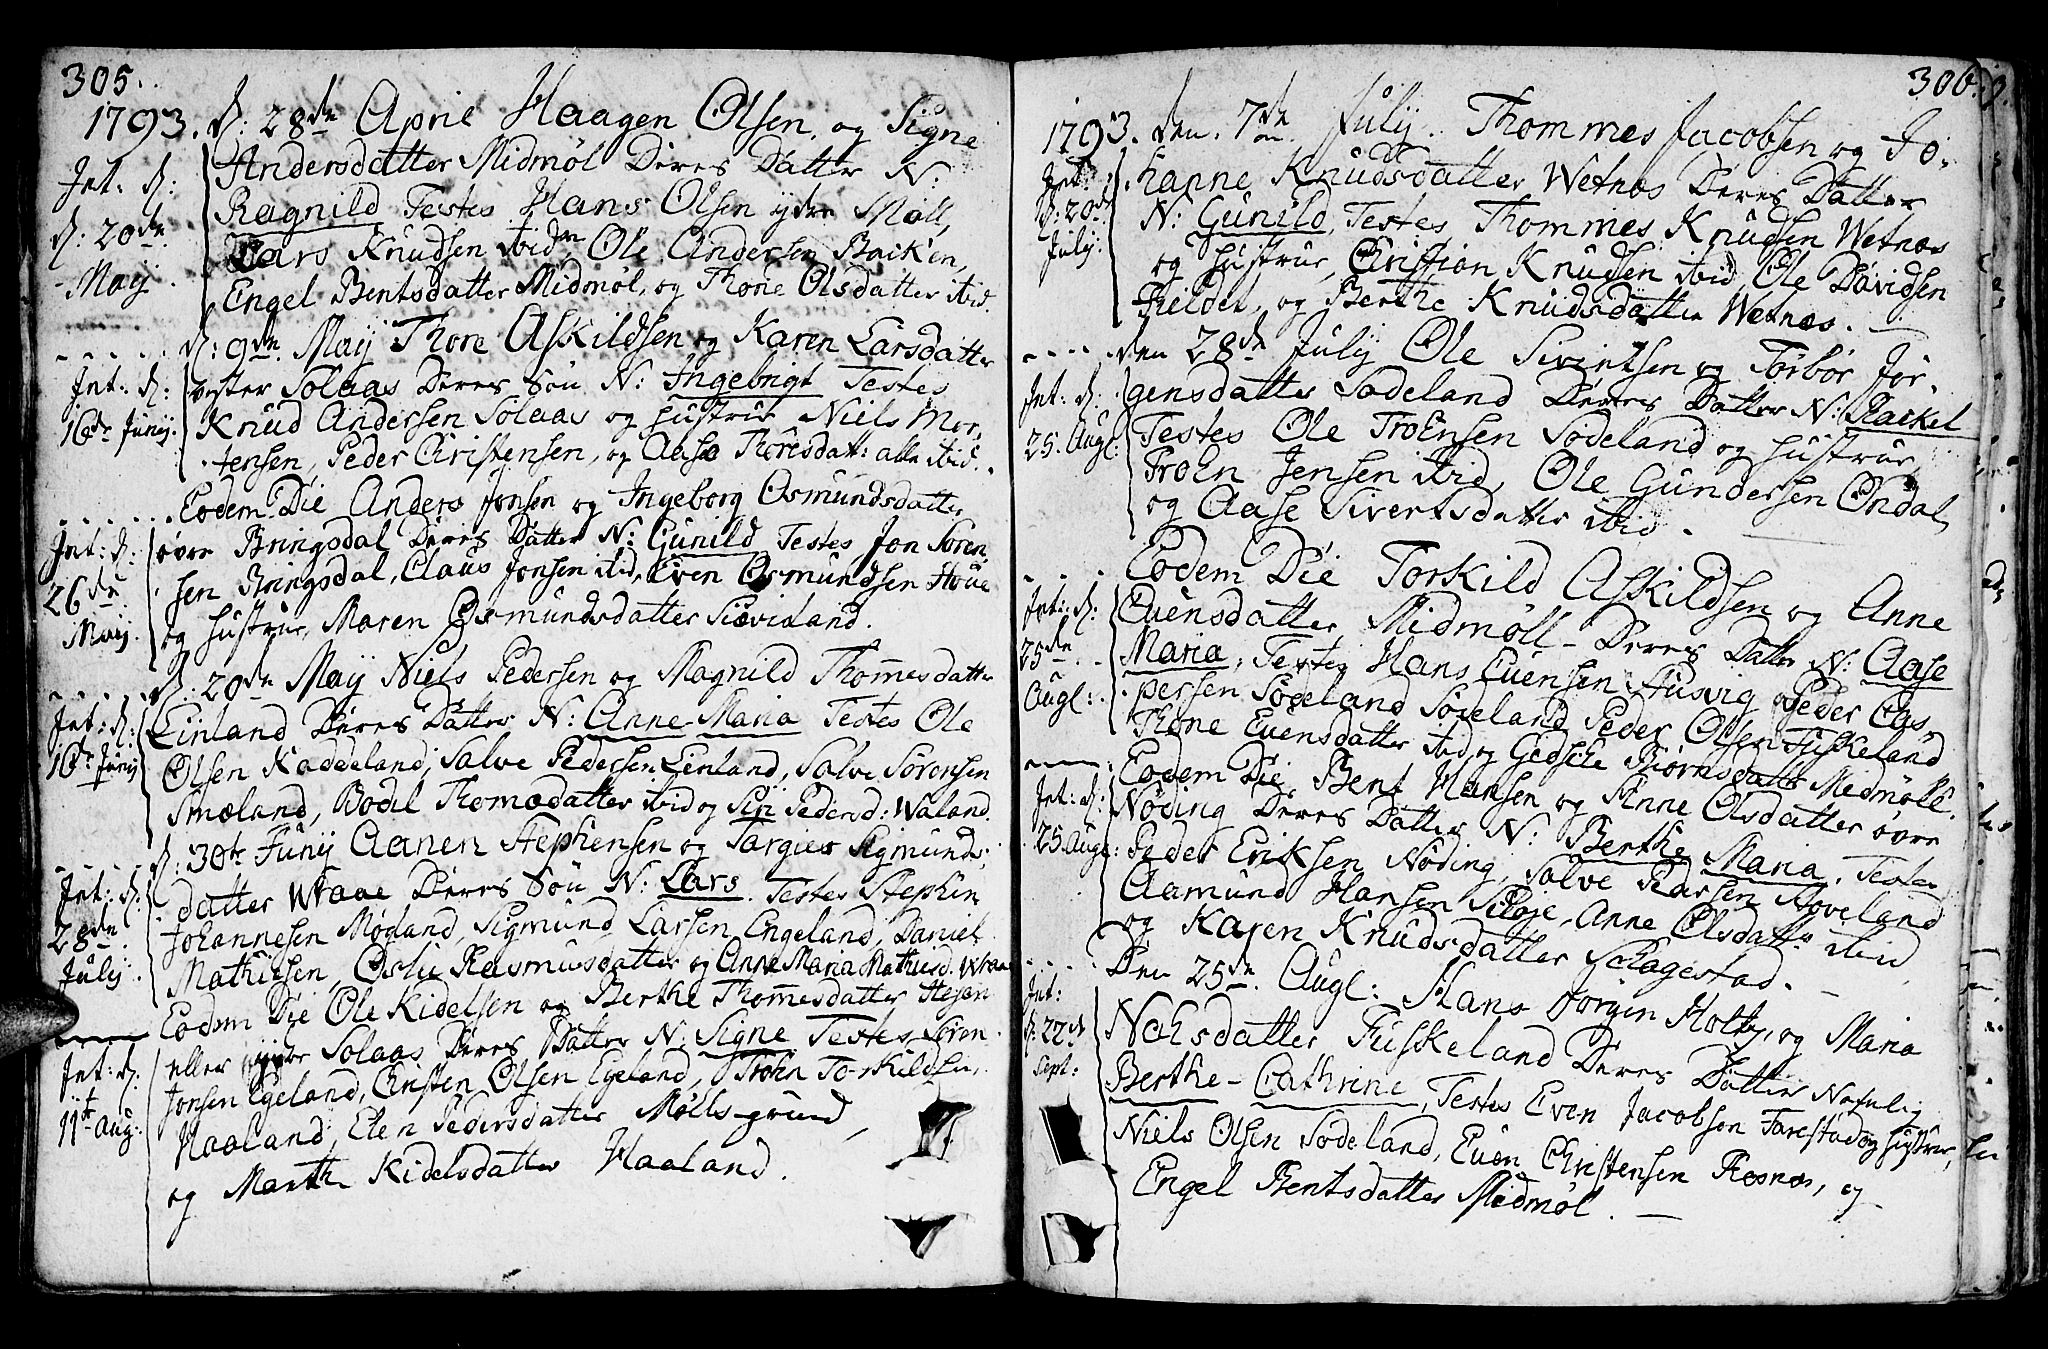 305.
1793. d: 28de April Haagen Olsen, og Signe
Int: d:
d: 20de
May.
Andersdatter Midmøl Deres Datter N:
Ragnild Testes Hans Olsen ydre Møll,
Lars Knudsen ibid, Ole Andersen Backen,
Engel Bentsdatter Midmøl, og Thone Olsdatter ibid.
d: 9de May Thore Askildsen og Karen Larsdatter
Int: d:
16de Junij.
vester Solaas Deres Søn N: Ingebrigt Testes
Knud Andersen Solaas og Hustrue Niels Mor,
tensen, Peder Christensen, og Aase Thoresdatt: alle ibid.
Eodem Die Anders Jonsen og Ingeborg Osmundsdatter
Int: d:
26de
May.
øvre Bringsdal Deres Datter N: Gunild Testes Jon Søren
sen Bringsdal, Claus Jonsen ibid, Even Osmundsen Houe
og Hustrue, Maren Osmundsdatter
d: 20de May Niels Pedersen og Magnild Thommesdatter
Int: d:
16de Junij
Linland Deres Datter N: Anne Maria Testes Ole
Olsen Kaddeland, Salve Pedersen Linland, Salve Sørensen
Smæland, Bodil Thomædatter ibid og Siri Pedersd: Waland.
d: 30te Junij Aanen Stephensen og Targier Sigmunds,
Int: d:
28de
July.
datter Wraae Deres Søn N: Lars. Testes Stephen
Johannesen Møgland, Sigmund Larsen Engeland, Daniel
Mathiesen, Oslie Rasmusdatter og Anne Maria Mathiesd. Wraae
Eodem Die Ole Kidelsen og Berthe Thommesdatter Stesen
Int: d:
11te Aug:
eller øvre Solaas Deres Datter N: Signe Testes Søren
Jonsen Egeland, Christen Olsen Egeland, Troen Torkildsen,
Haaland, Elen Pedersdatter Møllsgrund,
og Marthe Kidelsdatter Haaland.
306.
1793. den. 7de July. Thommes Jacobsen og Jo,
Int:
d: 20de
July.
hanne Knudsdatter Wetnæs Deres Datter
N: Gunild, Testes Thommes Knudsen Wetnæs
og Hustrue, Christian Knudsen ibid, Ole Davidsen
og Berthe Knudsdatter Wetnæs.
den 28de July Ole Sivertsen og Torbor Jør,
Int: d:
25. Augl:
gensdatter Sodeland Deres Datter N: Rackel
Testes Ole Troensen Sødeland og Hustrue,
Troen Jensen ibid, Ole Gundersen Øndal,
og Aase Sivertsdatter ibid.
Eodem Die Torkild Askildsen og Anne
Int: d:
25de
Augl:
Euensdatter Midmøll - Deres Datter N: Aase
Maria, Testes Hans Euensen Ausvig Peder Cas,
persen Sødeland Peder Olsen Fuskeland
Thone Euensdatter ibid, og Gedsche Biørnsdatter Midmøll.
Eodem Die, Bent Hansen og Anne Olsdatter øvre
Int: d:
25 Augl:
Nøding Deres Datter N: Berthe Maria. Testes
Peder Eriksen Nøding, Salve Pedersen Hoveland
Aamund Hansen Anne Olsdatter ibid
og Karen Knudsdatter Schagestad.
Den 25de Augl: Hans Jørgen Holby, og Maria
Int:
d: 22de
Sept:
Nahsdatter Fuskeland Deres Datter Nafnlig
Berthe - Cathrine, Testes Even Jacobsen Farestad og Hustrue,
Niels Olsen Sødeland, Euen Christensen Rosnæs, og
Engel Bentsdatter Midmøl.